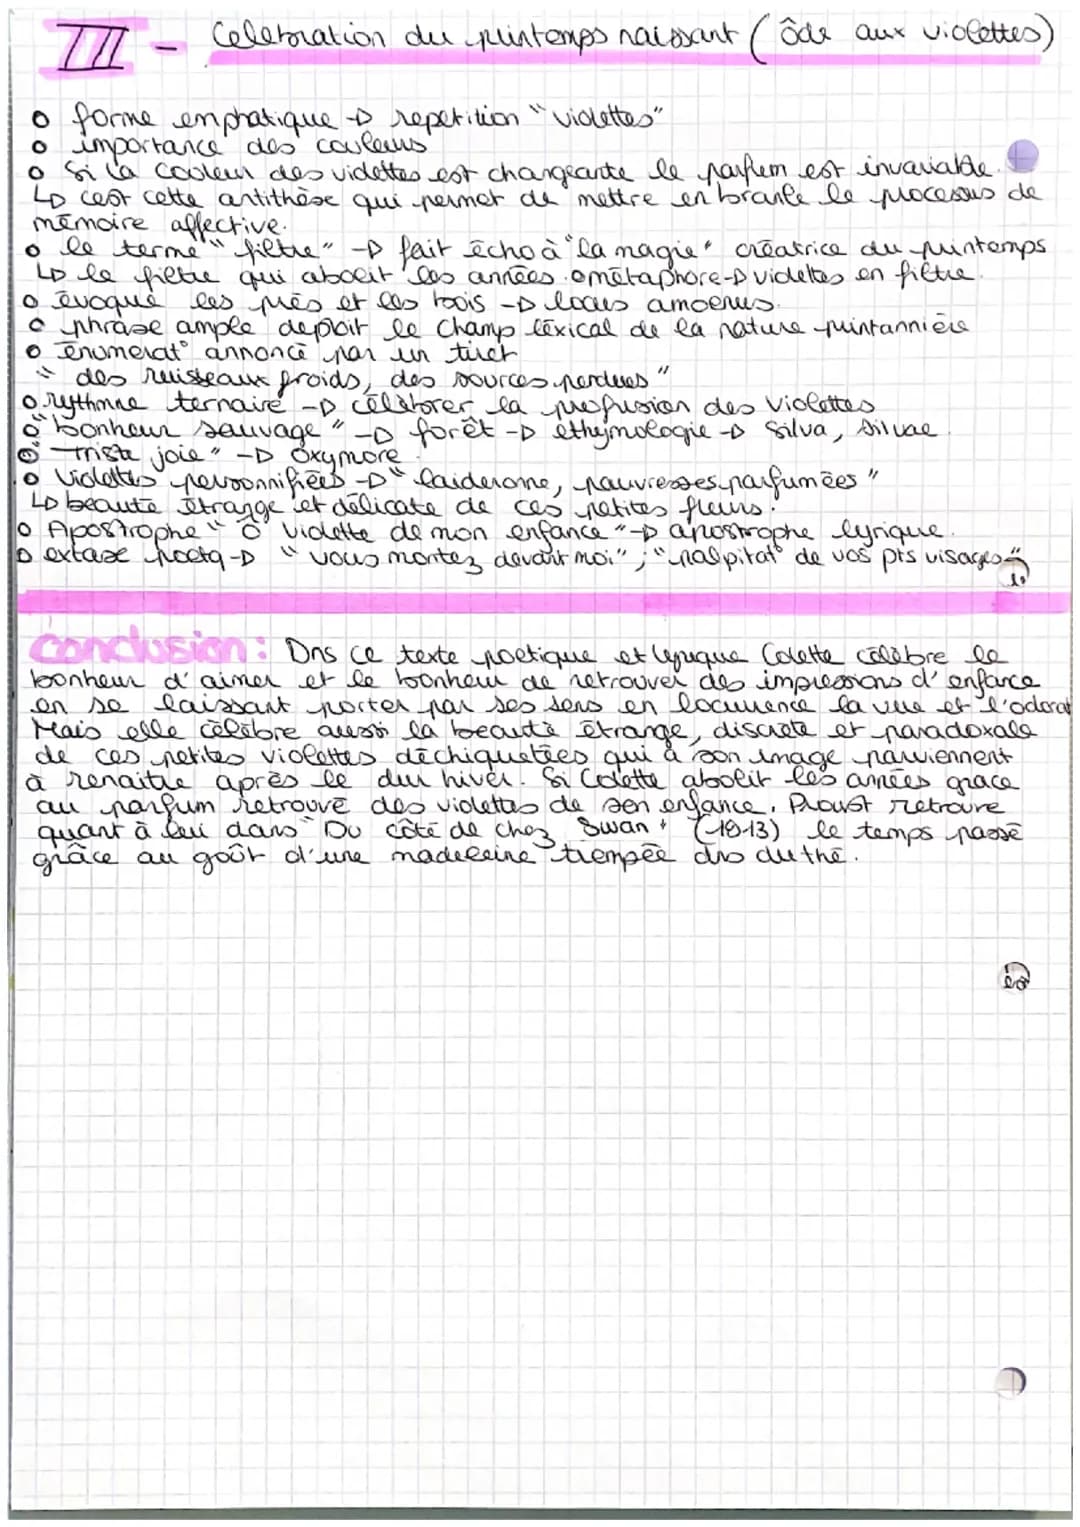 III - Celebration du printemps naissant (ôde aux violettes)
o forme emphatique -> repetition "violettes"
o importance des couleurs
o Si la couleur des violettes est changeante le parfum est invariable.
↳ cest cette antithèse qui permet de mettre en branle le processus de
mémoire affective.
o le terme "filtre" -> fait écho à "la magie" créatrice du printemps
↳ le filtre qui abolit les années. o métaphore -> violettes en filtre.
o évoque les près et les bois -> locus amoenus.
o phrase ample deploit le champ lexical de la nature printannière
o énumerat° annoncé par un tiret
" des ruisseaux froids, des sources perdues "
o rythmne ternaire -> célébrer la profusion des violettes
o "bonheur sauvage" -> forêt -> éthymologie -> Silva, Silvae.
o "triste joie" -> Oxymore.
o Violettes personnifiées -> "laideronne, pauvresses parfumées"
↳ beauté étrange et délicate de ces petites fleurs.
o Apostrophe "Ô violette de mon enfance" -> apostrophe lyrique.
o extase poetq -> "vous montez devant moi" ; "palpitat° de vos pts visages"
Conclusion : Dns ce texte poetique et lyrique Colette célèbre le
bonheur d'aimer et le bonheur de retrouver des impressions d'enfance
en se laissant porter par ses sens en locurence la vue et l'odorat
Mais elle célèbre aussi la beauté étrange, discrète et paradoxale
de ces petites violettes déchiquetées qui à son image parviennent
à renaitre après le dur hiver. Si Colette abolit les années grace
au parfum retrouvé des violettes de son enfance, Proust retrouve
quant à lui dans "Du côté de chez Swan" (1913) le temps passé
grâce au goût d'une madeleine trempée dns du thé.